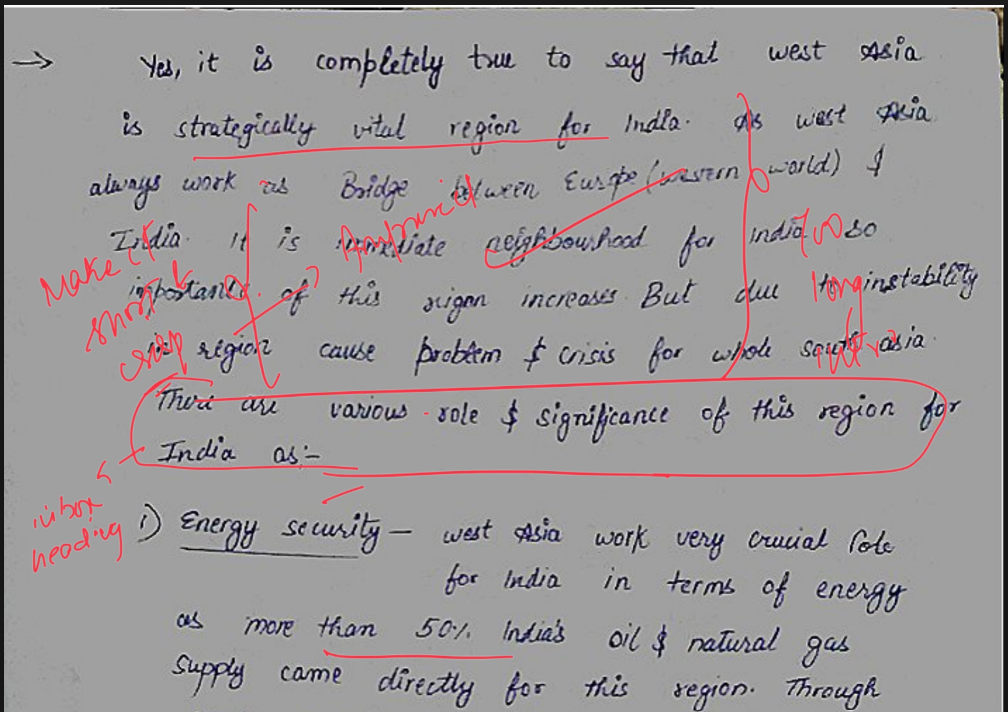 → Yes, it is completely true to say that west Asia
is strategically vital region for India. As west Asia
always work as Bridge between Europe (western world) &
India. It is immediate neighbourhood for India so
importance of this rigon increases. But due to instability
in region cause problem & crisis for whole south asia.
There are various role & significance of this region for
India as:-
i) Energy security — west Asia work very crucial role
for India in terms of energy
as more than 50% India's oil & natural gas
supply came directly for this region. Through
Make it
short &
crisp
too
long
in box
heading